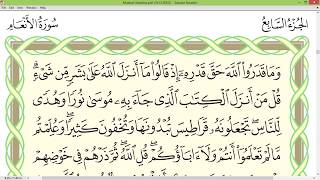 الجُزْءُ السَّابِعُ
سُورَةُ الأَنْعَامِ
وَمَا قَدَرُوا۟ ٱللَّهَ حَقَّ قَدْرِهِۦٓ إِذْ قَالُوا۟ مَآ أَنزَلَ ٱللَّهُ عَلَىٰ بَشَرٍ مِّن شَىْءٍ ۗ
قُلْ مَنْ أَنزَلَ ٱلْكِتَٰبَ ٱلَّذِى جَآءَ بِهِۦ مُوسَىٰ نُورًا وَهُدًى
لِّلنَّاسِ ۖ تَجْعَلُونَهُۥ قَرَاطِيسَ تُبْدُونَهَا وَتُخْفُونَ كَثِيرًا ۖ وَعُلِّمْتُم
مَّا لَمْ تَعْلَمُوٓا۟ أَنتُمْ وَلَآ ءَابَآؤُكُمْ ۖ قُلِ ٱللَّهُ ۖ ثُمَّ ذَرْهُمْ فِى خَوْضِهِمْ